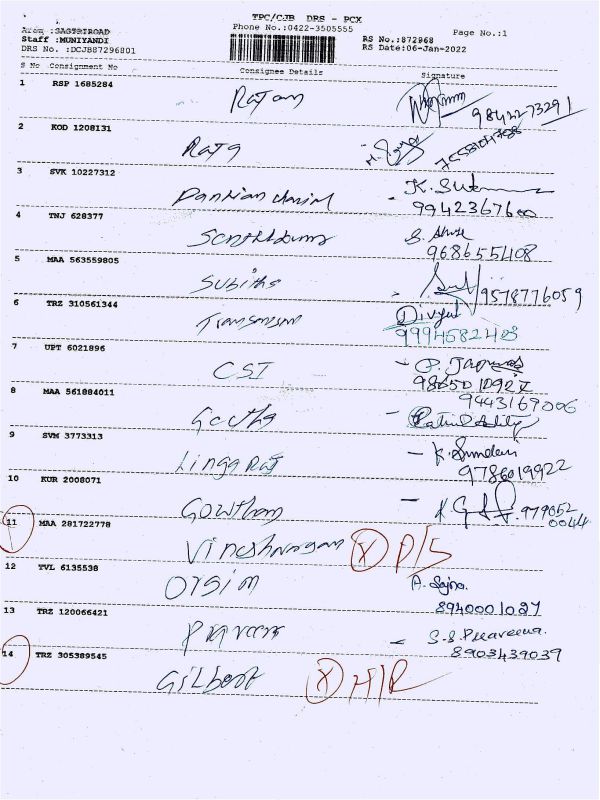 TPC/CJB DRS - PCX
Phone No.:0422-3505555
Page No.:1
Area :SASTRIROAD
Staff :MUNIYANDI
DRS No. :DCJB87296801
RS No.:872968
RS Date:06-Jan-2022
S No Consignment No Consignee Details Signature
1 RSP 1685284 Rajan
9842273291
2 KOD 1208131 Raja
3 SVK 10227312 K. Su
9942367600
4 TNJ 628377 S.
968655408
5 MAA 563559805 Subitha
9578776059
6 TRZ 310561344 Divya
9994582403
7 UPT 6021896 CSI - P.
9443169006
8 MAA 561884011 Geetha -
9 SVM 3773313 Linga Raj - K. Sundari
9786019922
10 KUR 2008071 Gowtham - K
979052
0044
11 MAA 281722778 (X) D/S
12 TVL 6135538 Origin A. Sajna.
8940001027
13 TRZ 120066421 Praveen - S.S. Praveena.
8903439039
14 TRZ 305389545 Gilbert (X) H/R